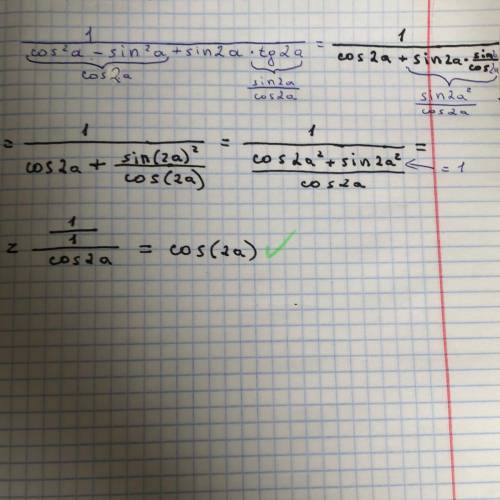 1/(cos²a - sin²a + sin2a · tg2a) = 1/(cos2a + sin2a · sin2/cos2a)
cos2a sin2a/cos2a sin2a²/cos2a
= 1/(cos2a + sin(2a)²/cos(2a)) = 1/((cos2a² + sin2a²)/cos2a) = = 1
= 1/(1/cos2a) = cos(2a) ✓